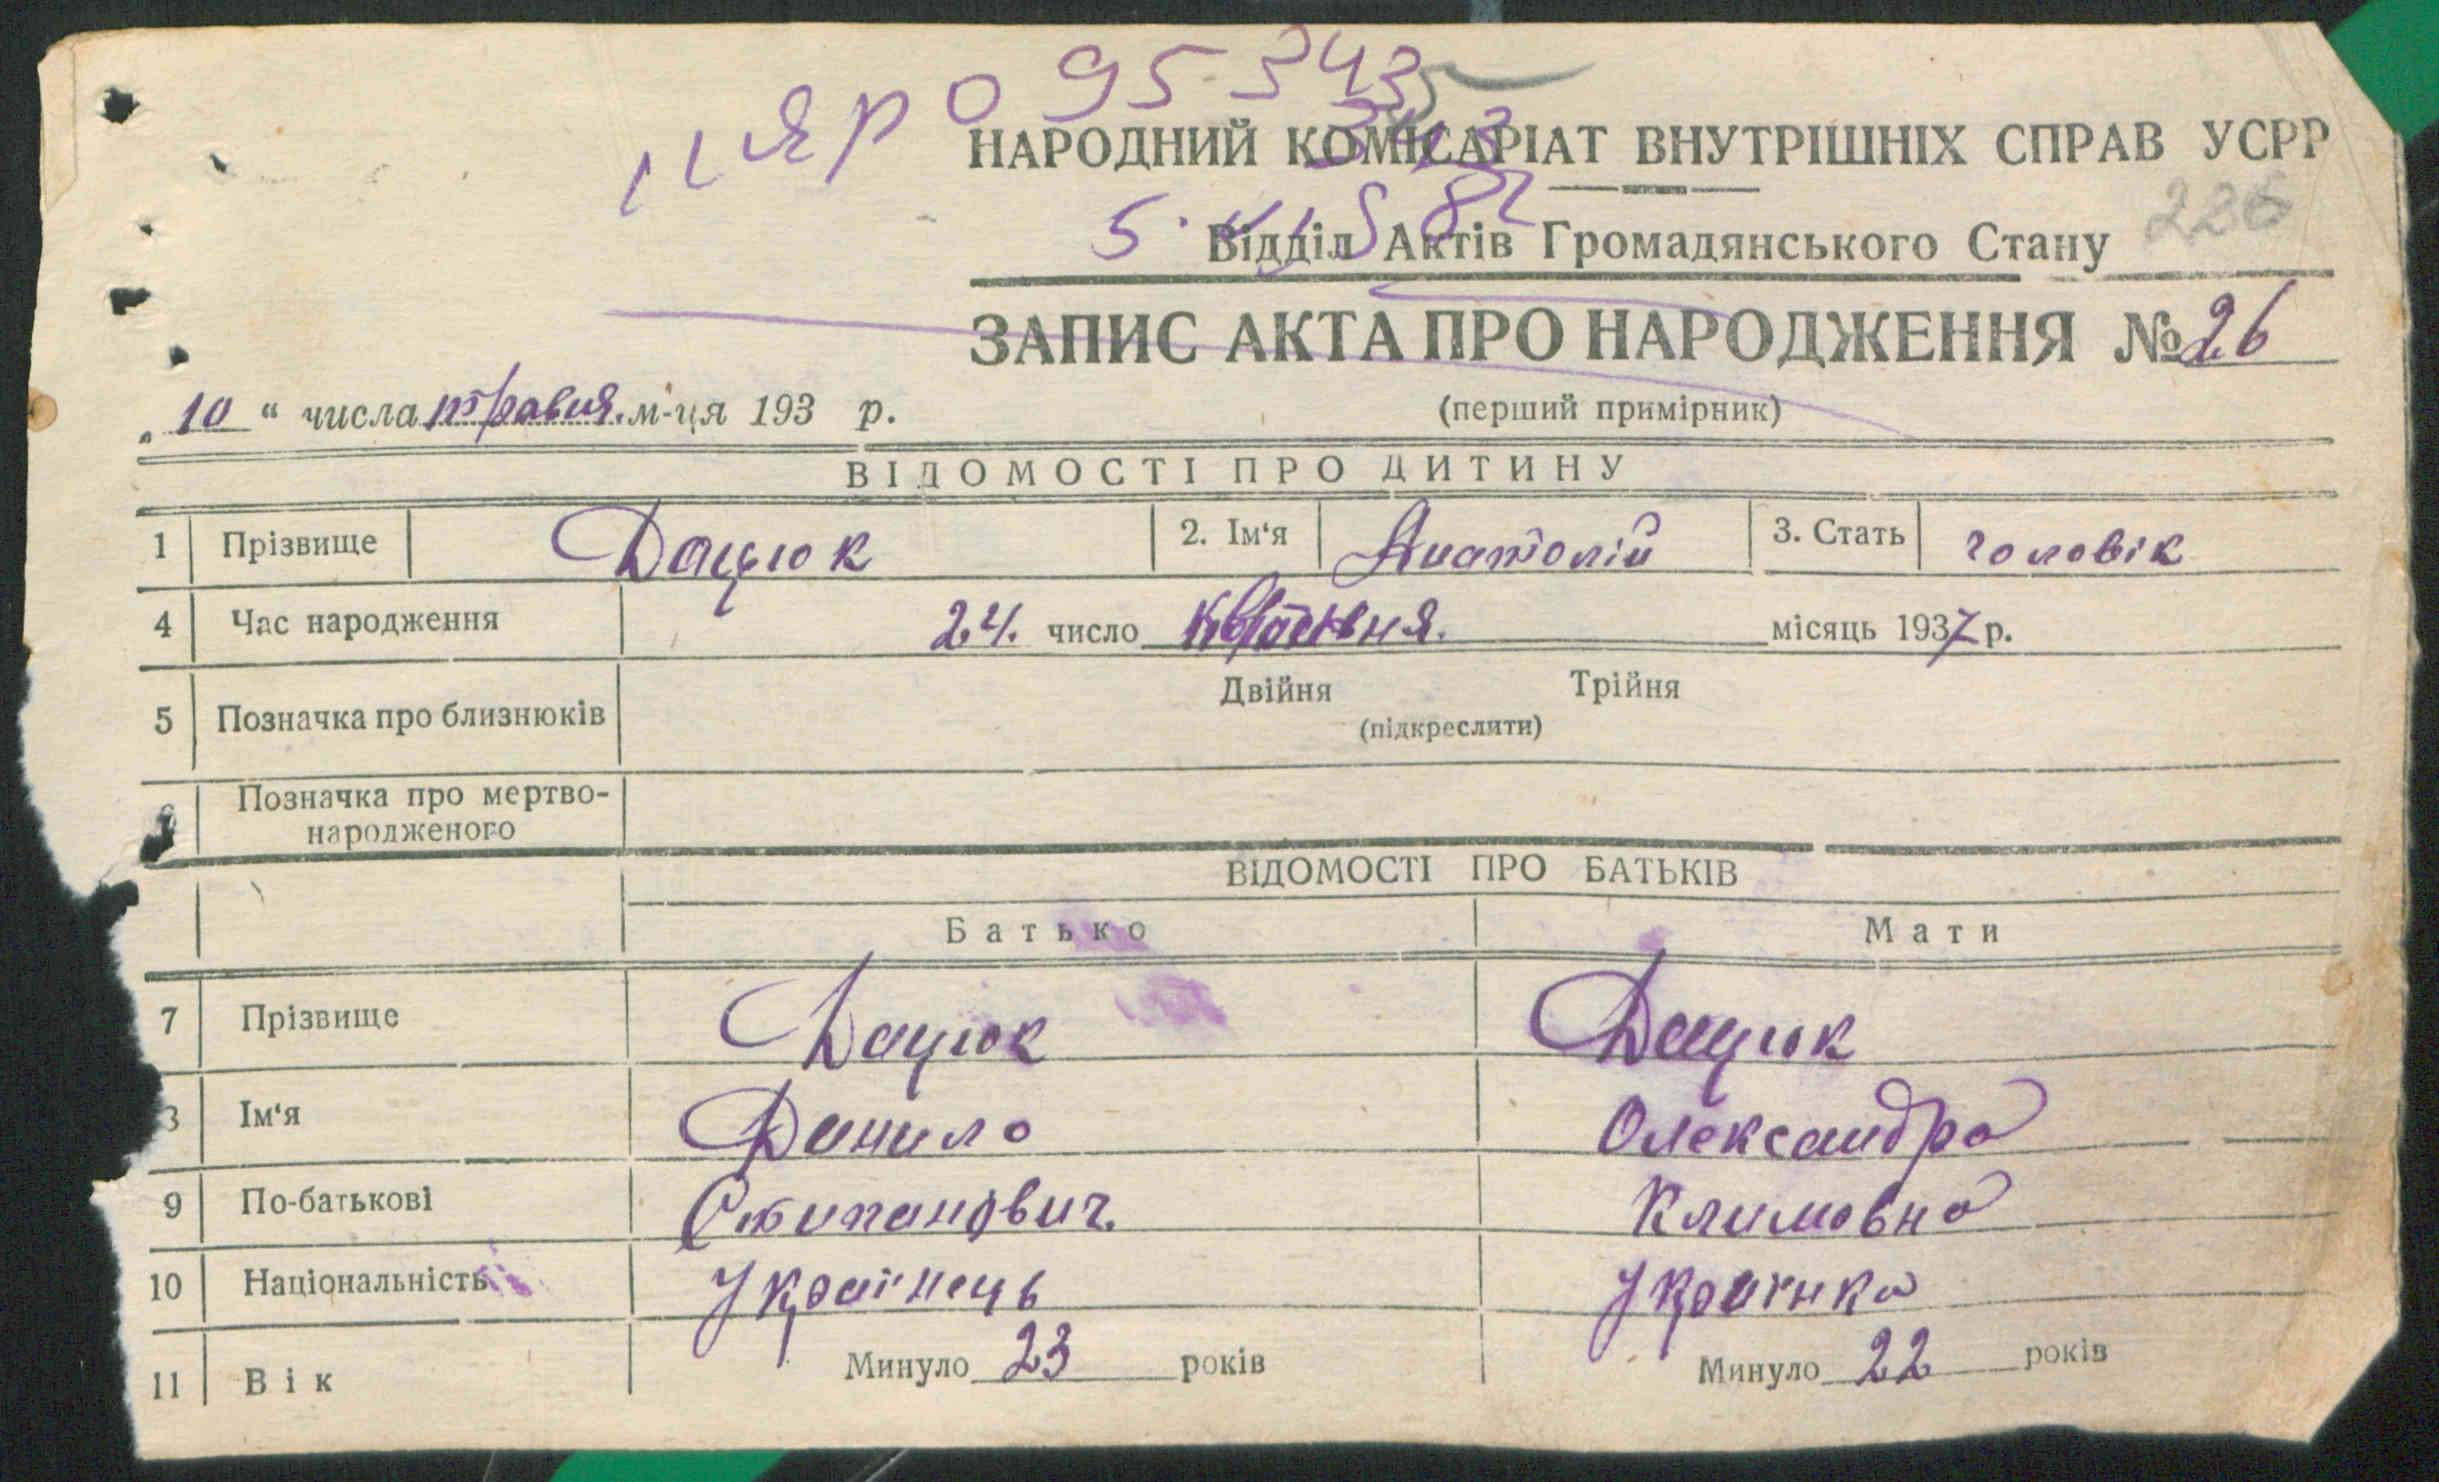 95 343
343
НАРОДНИЙ КОМІСАРІАТ ВНУТРІШНІХ СПРАВ УСРР
Відділ Актів Громадянського Стану
ЗАПИС АКТА ПРО НАРОДЖЕННЯ № 26
„10“ числа травня. м-ця 193 р.
(перший примірник)
ВІДОМОСТІ ПРО ДИТИНУ
1 Прізвище Дацюк 2. Ім‘я Анатолій 3. Стать чоловік
4 Час народження 24. число квітня. місяць 1937 р.
5 Позначка про близнюків Двійня Трійня
(підкреслити)
6 Позначка про мертво-
народженого
ВІДОМОСТІ ПРО БАТЬКІВ
Батько Мати
7 Прізвище Дацюк Дацюк
8 Ім‘я Данило Олександра
9 По-батькові Степанович. Климовна
10 Національність Українець Українка
11 Вік Минуло 23 років Минуло 22 років